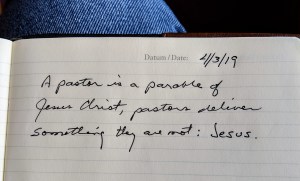 Datum / Date: 4/3/19
A pastor is a parable of
Jesus Christ, pastors deliver
something they are not: Jesus.